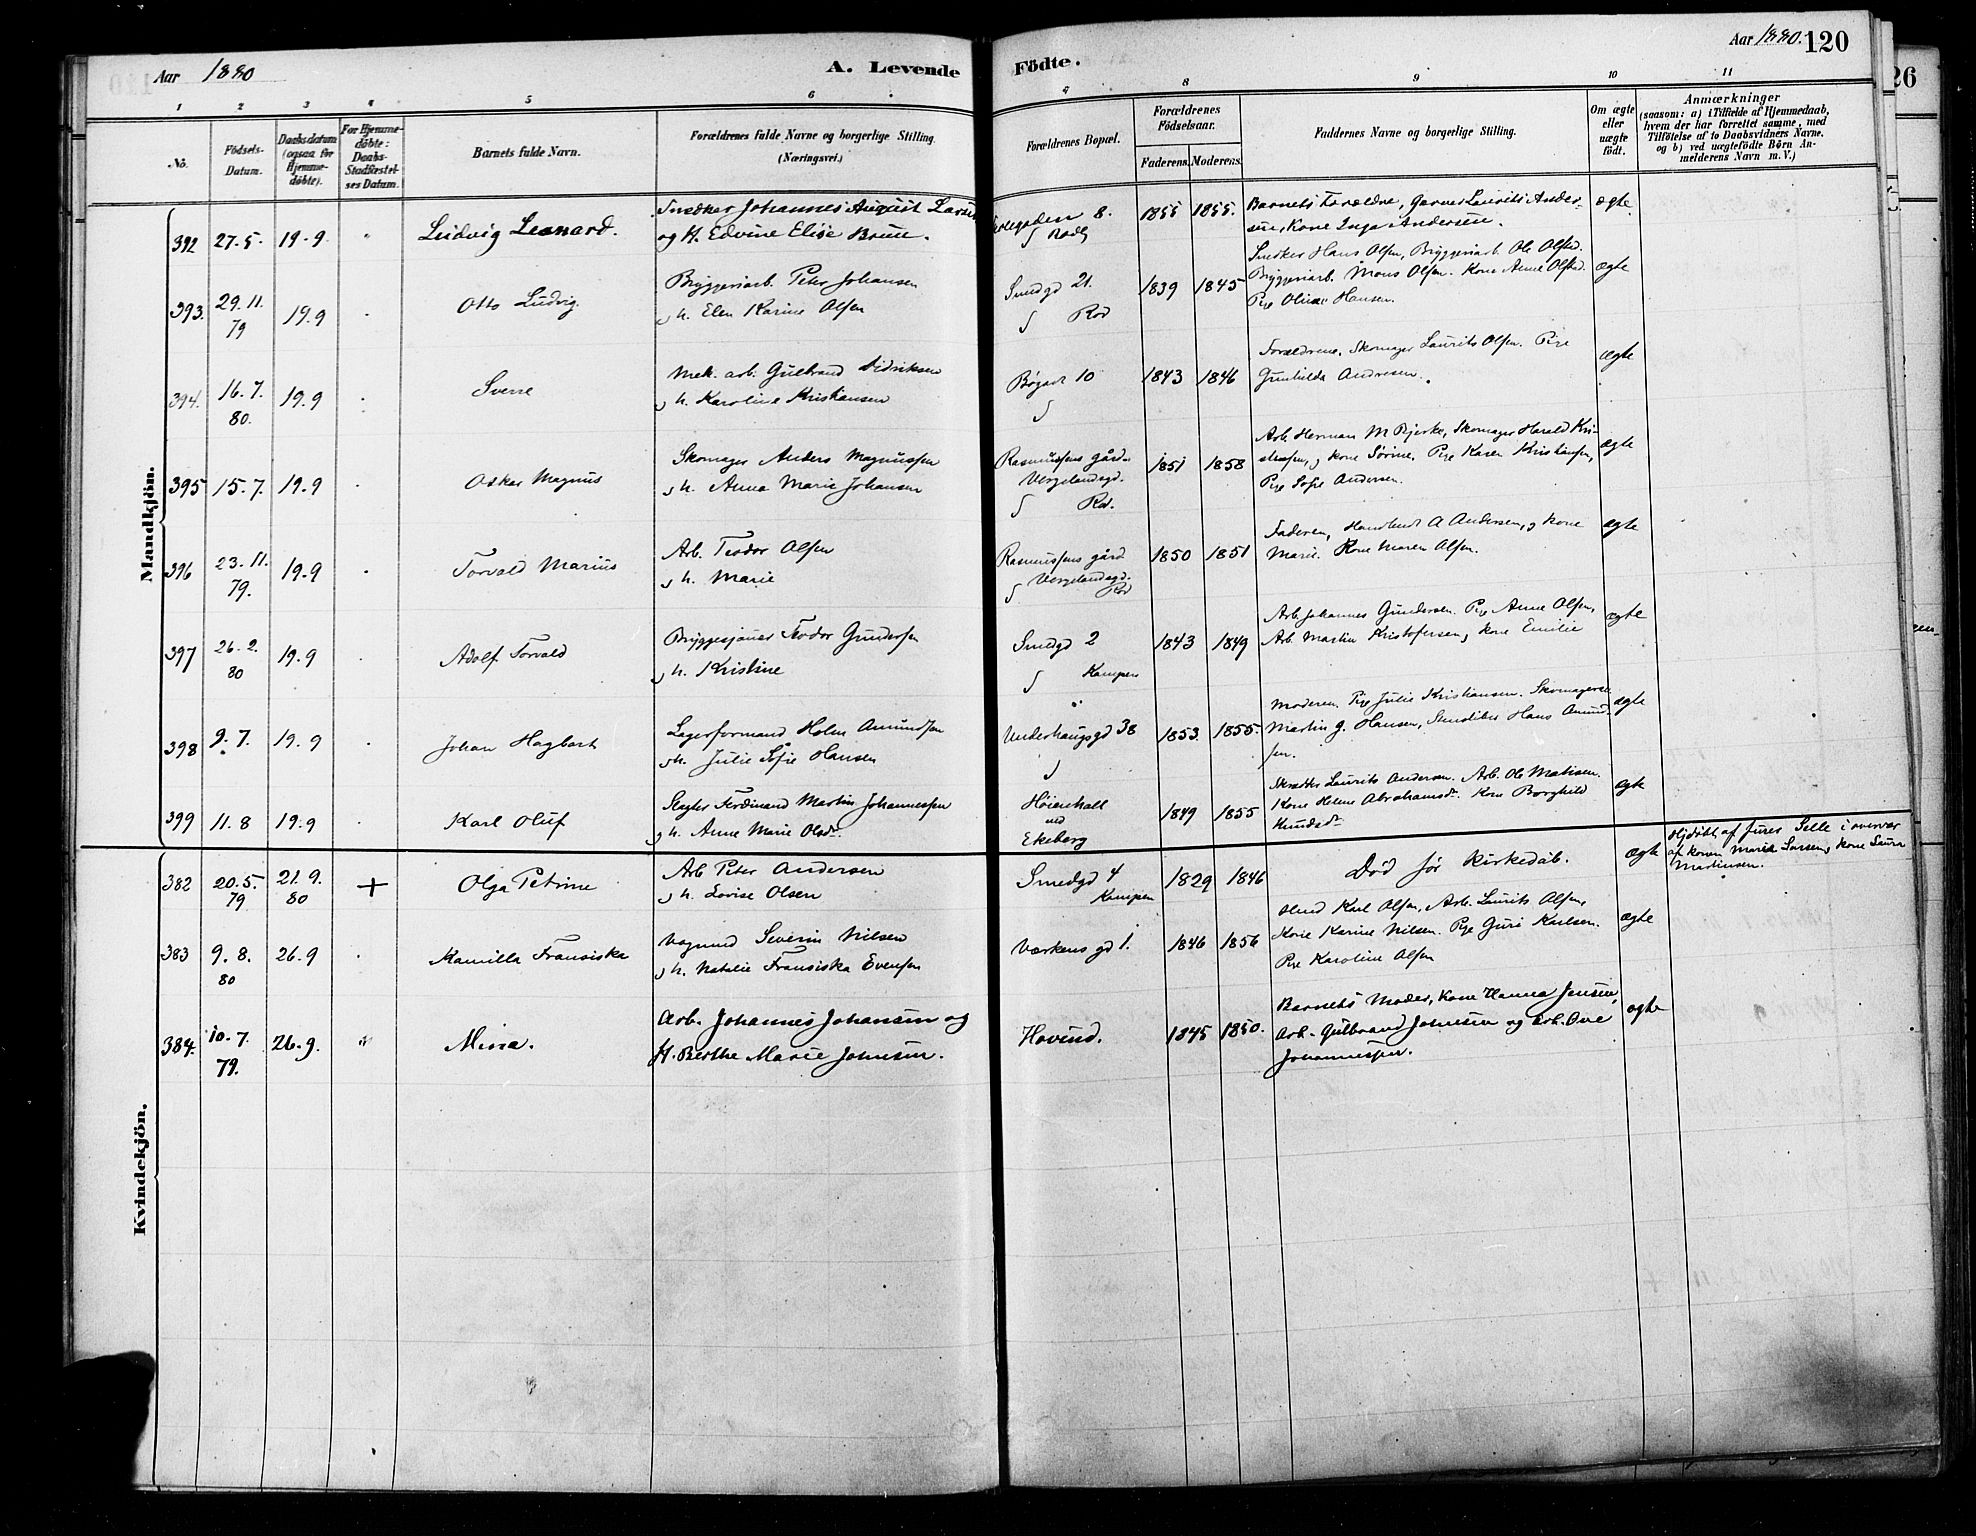 Aar 1880
A. Levende Födte.
Aar 1880. 120
26
1 2 3 4 5 6 7 8 9 10 11
No.
Födsels-Datum.
Daabsdatum (ogsaa for Hjemmedøbte).
For Hjemmedøbte: Daabs-Stadfæstelses Datum.
Barnets fulde Navn.
Forældrenes fulde Navne og borgerlige Stilling. (Næringsvei.)
Forældrenes Bopæl.
Forældrenes Födselsaar.
Faderens. Moderens.
Faddernes Navne og borgerlige Stilling.
Om ægte eller uægte födt.
Anmærkninger
(saasom: a) i Tilfælde af Hjemmedaab,
hvem der har forrettet samme, med
Tilföielse af to Daabsvidners Navne.
og b) ved uægtefödte Börn Anmelderens Navn m. V.)
Mandkjön.
392 27.5. 19.9 Ludvig Leonard. Snedker Johannes August Larsen 8. 1855 1855. Barnets Forældre, Garver Laurits Ander- ægte.
og H. Edvine Elise Bruu. sen, Kone Inga Andersen.
393. 29.11. 79 19.9 Otto Ludvig. Bryggeriarb. Peter Johansen Smedgd 21. 1839 1845 Snedker Hans Olsen, Bryggeriarb. Ole Olsen. ægte
og h. Elen Karine Olsen Rod Bryggeriarb. Mons Olsen. Kone Anne
Pige Hansen.
394. 16.7. 80. 19.9 Sverre Mek. arb. Gulbrand Didriksen 10 1843 1846 Forældrene, Skomager Laurits Olsen. Pige ægte
og h. Karoline Kristiansen Gunhilda Andresen.
395 15.7. 19.9 Oskar Magnus Skomager Anders Magnussen Rasmussens gård. 1851 1858 Arb. Herman M Bjerke, Skomager Harald Kri- ægte
og h. Anna Marie Johansen Vergelandsgd. Rod. og kone Sørine, Pige Karen Kristiansen,
Pige Sofie Andersen.
396 23.11. 79. 19.9 Torvald Marius Arb. Teodor Olsen Rasmussens gård 1850 1851 Faderen, A Andersen, og kone ægte
og h. Marie Vergelandsgd. Rod Marie. Kone Maren Olsen.
397 26.2. 80 19.9 Adolf Torvald Bryggesjauer Teodor Gundersen Smedgd 2 1843 1849 Arb. Johannes Gundersen. Pige Anne Olsen, ægte
og h. Kristine Kampen Arb. Martin Kristofersen, og kone Emilie
398 9.7. 19.9 Johan Hagbart Lagerformand Holm Amundsen Underhaugsgd 38 1853. 1855. Moderen. Pige Julie Kristiansen. ægte
og h. Julie Sofie Hansen Martin G. Hansen, Hans Amund-
sen.
399 11.8 19.9 Karl Oluf Slagter Ferdinand Martin Johannessen Høienhall 1849 1855 Skrædder Laurits Andersen. Arb. Ole Matisen. ægte
og h. Anne Marie Olsdr. ved Ekeberg Kone Helene Abrahamsdr. Kone Borghild
Knudsdr
Kvindekjön.
382 20.5. 79 21.9. 80 + Olga Petrine Arb Peter Andersen Smedgd 4 1829 1846 Død før kirkedåb. ægte Hjdøbt af Selle i overvær
og h. Lovise Olsen Kampen af konen Marie Larsen, kone Laura
Martinsen.
383 9.8. 80 26.9 Kamilla Fransiska Vognmd Severin Nilsen Værkens gd 1. 1846 1856 Karl Olsen, Arb. Laurits Olsen, ægte
og h. Natalie Fransiska Evensen Kone Karine Nilsen. Pige Guri Karlsen.
Pige Karoline Olsen
384. 10.7. 79. 26.9. Minna. Arb. Johannes Johansen og Hovind. 1845 1850. Barnets Moder, Kone Hanna Jensen, ægte
H. Berthe Marie Johnsen. Arb. Gulbrand Johnsen og Arb. Ove
Johannessen.